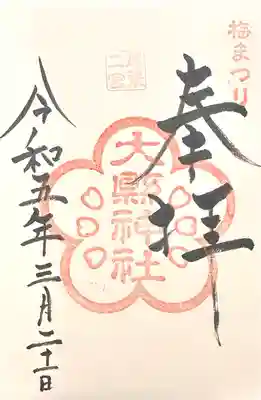 梅まつり
奉拝
尾張二宮
大縣神社
令和五年三月二十一日